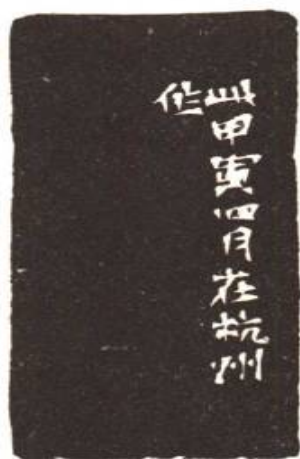 卅甲寅四月在杭州
作